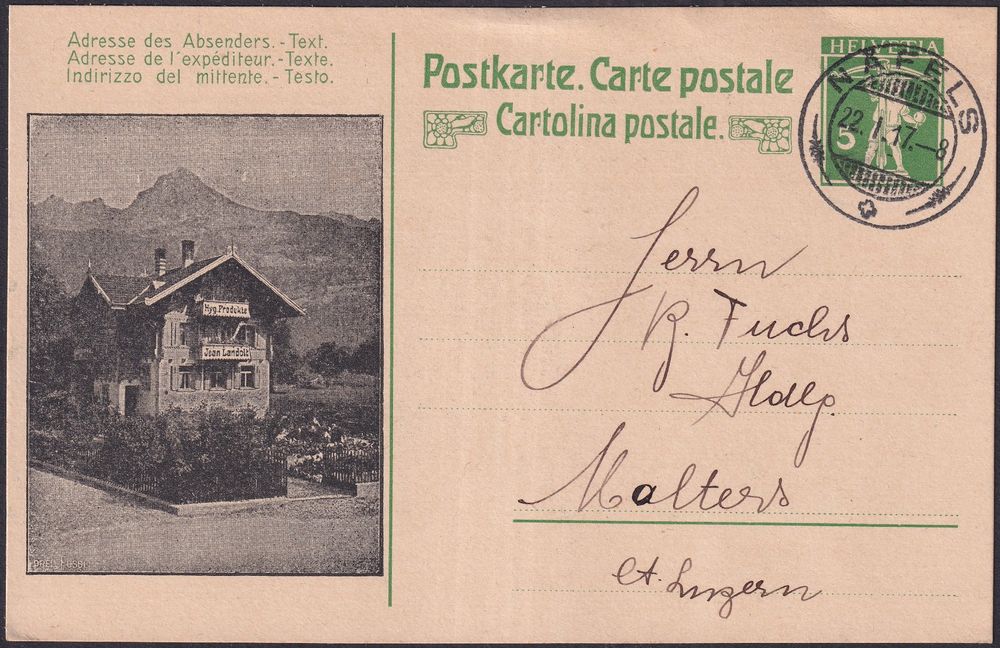 Adresse des Absenders. - Text.
Adresse de l'expéditeur. - Texte.
Indirizzo del mittente. - Testo.
Postkarte. Carte postale
Cartolina postale.
HELVETIA
5
NÄFELS
22. I. 17. – 8
Hyg. Produkte
Jean Landolt
Herrn
R. Fuchs
Hdlg.
Malters
Ct. Luzern